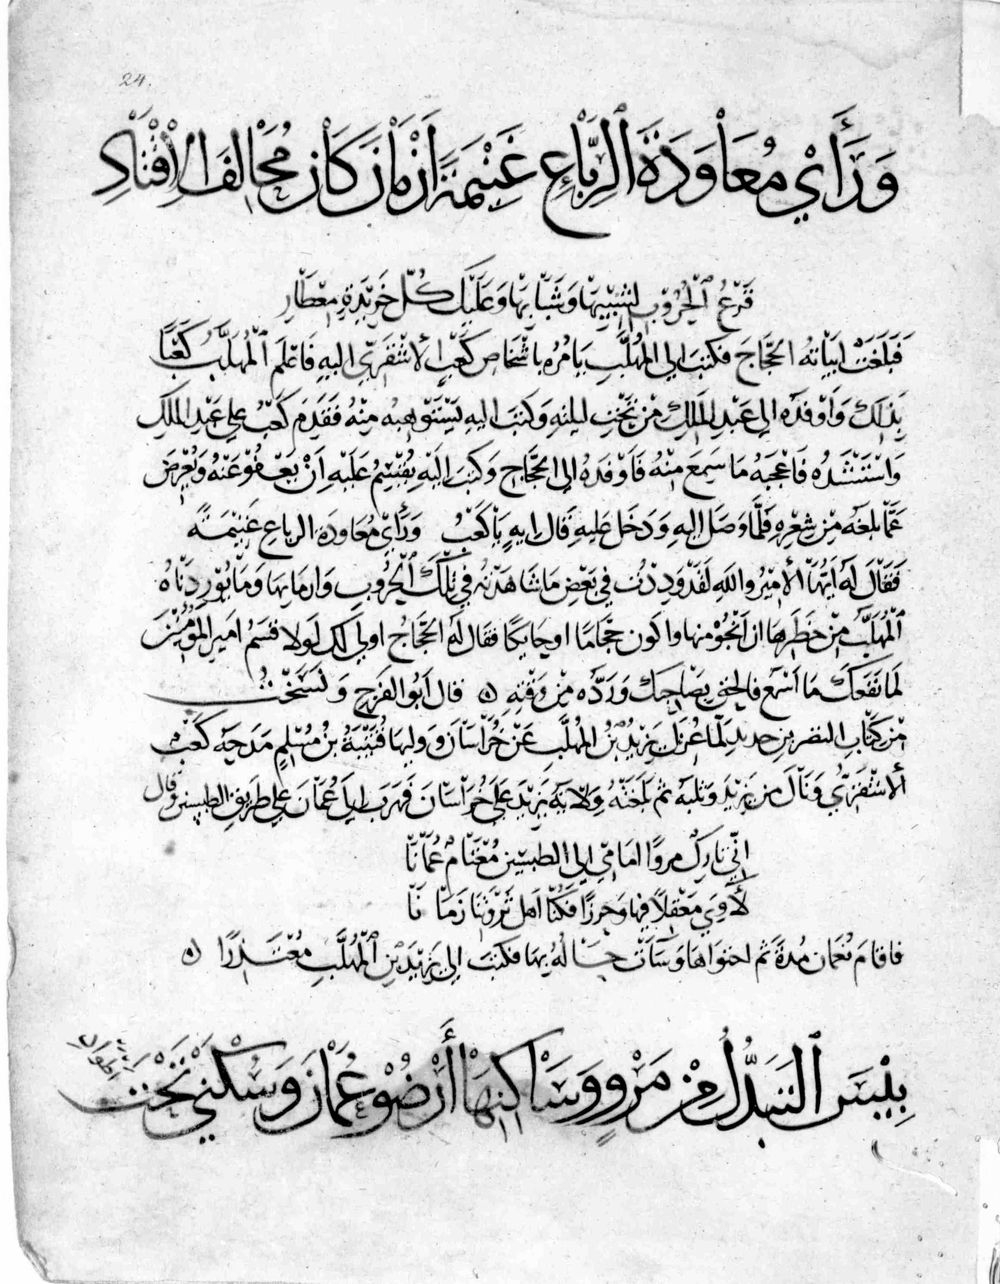 24.
وَرَأَيْ مُعَاوَدَةَ ٱلرِّبَاعِ غَنِيْمَةً أَزْمَانَ كَانَ مُحَالِفَ الْإِقْتَارِ
قَرْعُ ٱلْحُرُوْبِ لشيبها وَشَبَابِهَا وَعَلَيْكَ كُلّ خَرِيْدَةٍ مِعْطَارِ
فَبَلَغَتْ ابيَاته الحجَّاجَ فكتبَ الى المُهلَّبِ يَامُرُه باشْخَاص كَعْبٍ الأَشْقَرِيّ اليهِ فَاعلَم ٱلْمُهَلَّبُ كَعْبًا
بِذلك وَاَوْفَدَه الى عَبْدِ المَلِكِ مِنْ تَحْتِ ليلتهِ وَكتبَ اليهِ يَسْتَوهبهُ مِنْهُ فَقَدِمَ كَعْبٌ على عَبْدِ الملكِ
وَاسْتَنْشَدَهُ فَاعْجَبَهُ مَا سَمِعَ مِنْهُ فَاَوْفَدَهُ الى الحجَّاجِ وَكتبَ اِلَيْهِ يُقْسِمُ عَلَيْهِ اَنْ يَعْفُوَ عَنْهُ وَيُعْرِضَ
عَمَّا بلغَه مِنْ شِعْرِهِ فَلَمَّا وَصَلَ اليهِ وَدَخَل عليهِ قَالَ ايهٍ يَا كَعْبُ وَرَأَيْ مُعَاوَدَةَ الرباعِ غَنِيْمَةً
فَقَالَ لَه اَيُّهَا الأَمِيْرُ واللهِ لَقَدْ وَدِدْتُ في بَعْضِ مَا شاهَدْتُه في تِلْكَ ٱلْحُرُوبِ وَازمَانِهَا وَمَا يُوْرِدُنَاهُ
ٱلْمُهَلَّبُ مِنْ خَطَرِهَا ان اَنجُوَ منها واكون حَجَّامًا او حَايكًا فقَال لَه الحَجَّاجُ اولى لك لَولا قسَمُ اميرِ المؤمنين
لمَا نَفَعَكَ مَا اَسْمَع فالحقْ بِصَاحِبكَ وَرَدَّه مِنْ وَقْتِهِ ۞ قال اَبُو الفَرَجِ وَنَسَخْتُ
مِنْ كِتَابِ النضر بن حديد لمّا عُزِلَ يَزِيدُ بْنُ المُهلَّبِ عَنْ خُرَاسَانَ وَوَلِيها قُتَيْبَةُ بنُ مُسْلِمٍ مَدَحَهُ كَعْبٌ
الأشْقَرِيُّ وَنَالَ مِن يَزِيْدَ وَثلبَهُ ثم بَلَغَتْهُ وِلايَةُ يَزِيْدَ عَلَى خُرَاسَانَ فَهَرَبَ الى عُمَانَ على طَريقِ الطبسَيْنِ وَقَالَ
اِنّي تارِكٌ مروًا امَامِي الى الطبسَيْنِ مُعْتَامٌ عُمَانَا
لِآوِيَ مَعْقِلًا فيها وَحِرزًا فَكُنّا اَهل ثَرْوَتِهَا زَمَانَا
فاقامَ بعُمان مُدةً ثم اجتوَاهَا وَسَآءَتْ حَالهُ بها فكتبَ الى يَزِيْدَ بْنِ ٱلْمُهَلَّبِ مُعْتَذِرًا ۞
بِئْسَ التَّبَدُّلُ مِنْ مَرْوٍ وَسَاكِنِهَا أَرْضُ عُمَانَ وَسُكْنَى تَحْتَ